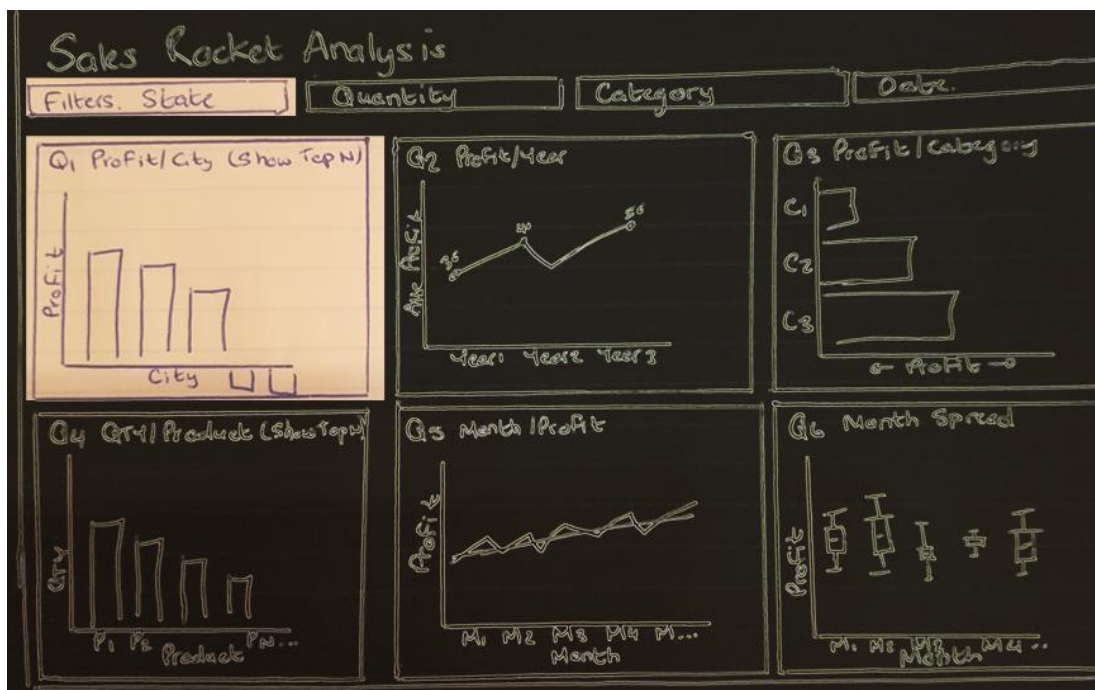 Sales Rocket Analysis
Filters. State
Quantity
Category
Date.
Q1 Profit/City (Show Top N)
Profit
City
Q2 Profit/Year
Ave Profit
Year1 Year2 Year3
Q3 Profit/Category
C1
C2
C3
← Profit →
Q4 QTY/Product (Show Top N)
QTY
P1 P2 PN...
Product
Q5 Month/Profit
Profit
M1 M2 M3 M4 M...
Month
Q6 Month Spread
Profit
M1 M2 M3 M4..
Month